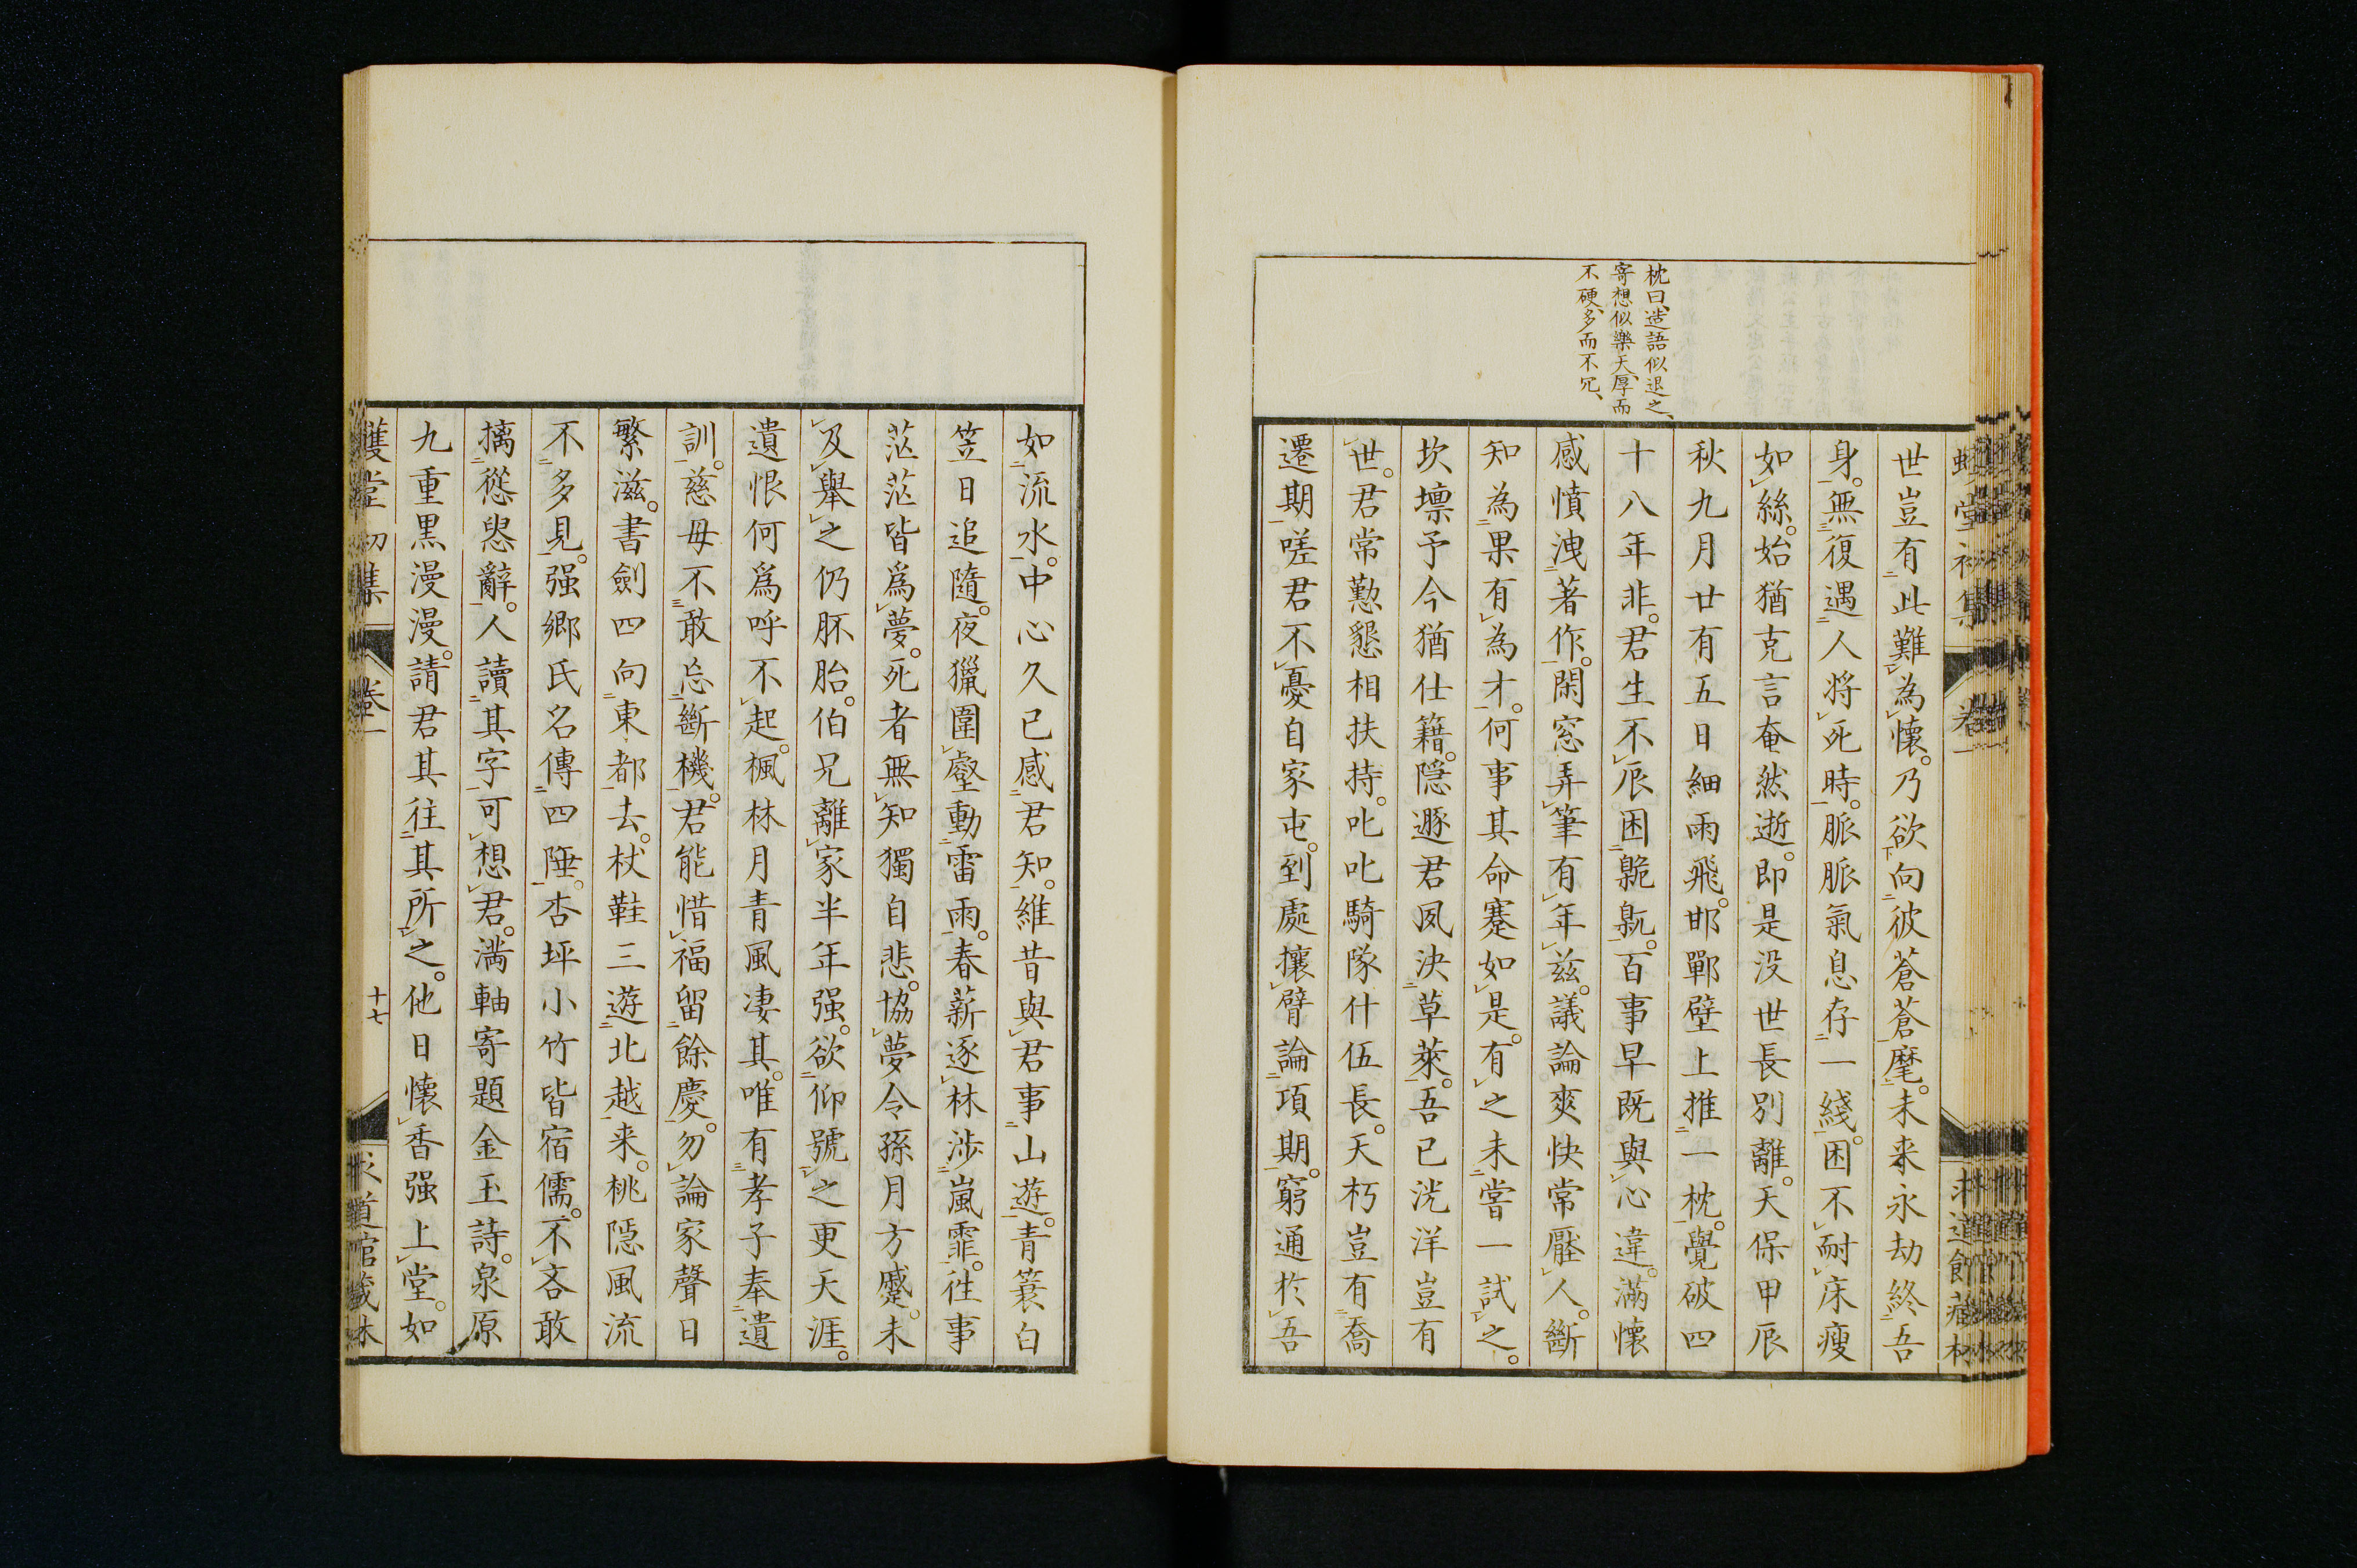 枕曰、造語似退之、
寄想似樂天、厚而
不硬、多而不冗、
世豈有此難為懷。乃欲向彼蒼蒼麾。未来永劫終吾
身。無復遇人将死時。脈脈氣息存一綫。困不耐床瘦
如絲。始猶克言奄然逝。即是没世長別離。天保甲辰
秋九月廿有五日細雨飛。邯鄲壁上推一枕。覺破四
十八年非。君生不辰困臲卼。百事早既與心違。滿懐
感憤洩著作。閑窓弄筆有年兹。議論爽快常壓人。斷
知為果有為才。何事其命蹇如是。有之未嘗一試之。
坎壈予今猶仕籍。隠遯君夙決草萊。吾已洸洋豈有
世。君常懃懇相扶持。叱叱騎隊什伍長。天朽豈有喬
遷期嗟君不憂自家屯。到處攘臂論項期。窮通於吾
如流水。中心久已感君知。維昔與君事山遊。青簑白
笠日追隨。夜獵圍壑動雷雨。春薪逐林渉嵐霏。徃事
茫茫皆爲夢。死者無知獨自悲。協夢令孫月方蹙。未
及舉之仍胚胎。伯兄離家半年强。欲仰號之更天涯。
遺恨何爲呼不起。楓林月青風凄其。唯有孝子奉遺
訓。慈母不敢忘斷機。君能惜福留餘慶。勿論家聲日
繁滋。書劍四向東都去。杖鞋三遊北越来。桃隠風流
不多見。强郷氏名傳四陲。杏坪小竹皆宿儒。不吝敢
摛慫慂辭。人讀其字可想君。満軸寄題金玉詩。泉原
九重黒漫漫。請君其往其所之。他日懐香强上堂。如
堂初集
卷一
十七
求道館藏本